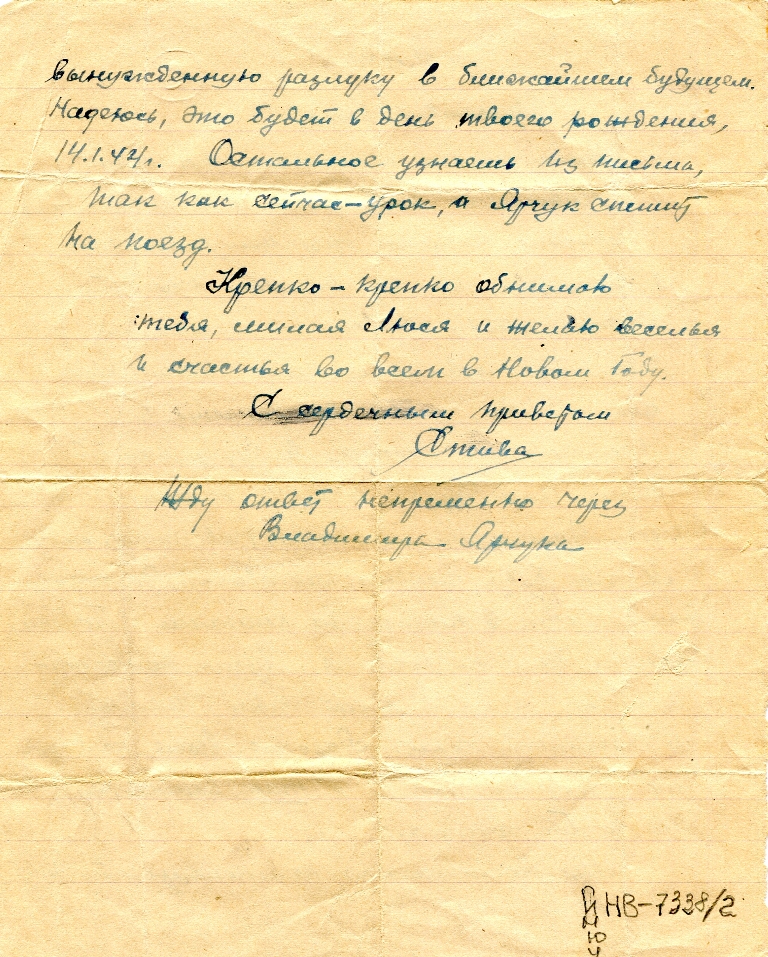 вынужденную разлуку в ближайшем будущем.
Надеюсь, это будет в день твоего рождения,
14.1.42г. Остальное узнаешь из письма,
так как сейчас – урок, а Ярчук спешит
на поезд.
Крепко – крепко обнимаю
тебя, милая Люся и желаю веселья
и счастья во всем в Новом Году.
С сердечным приветом
Стива
Жду ответ непременно через
Владимира Ярчука
НВ-7338/2